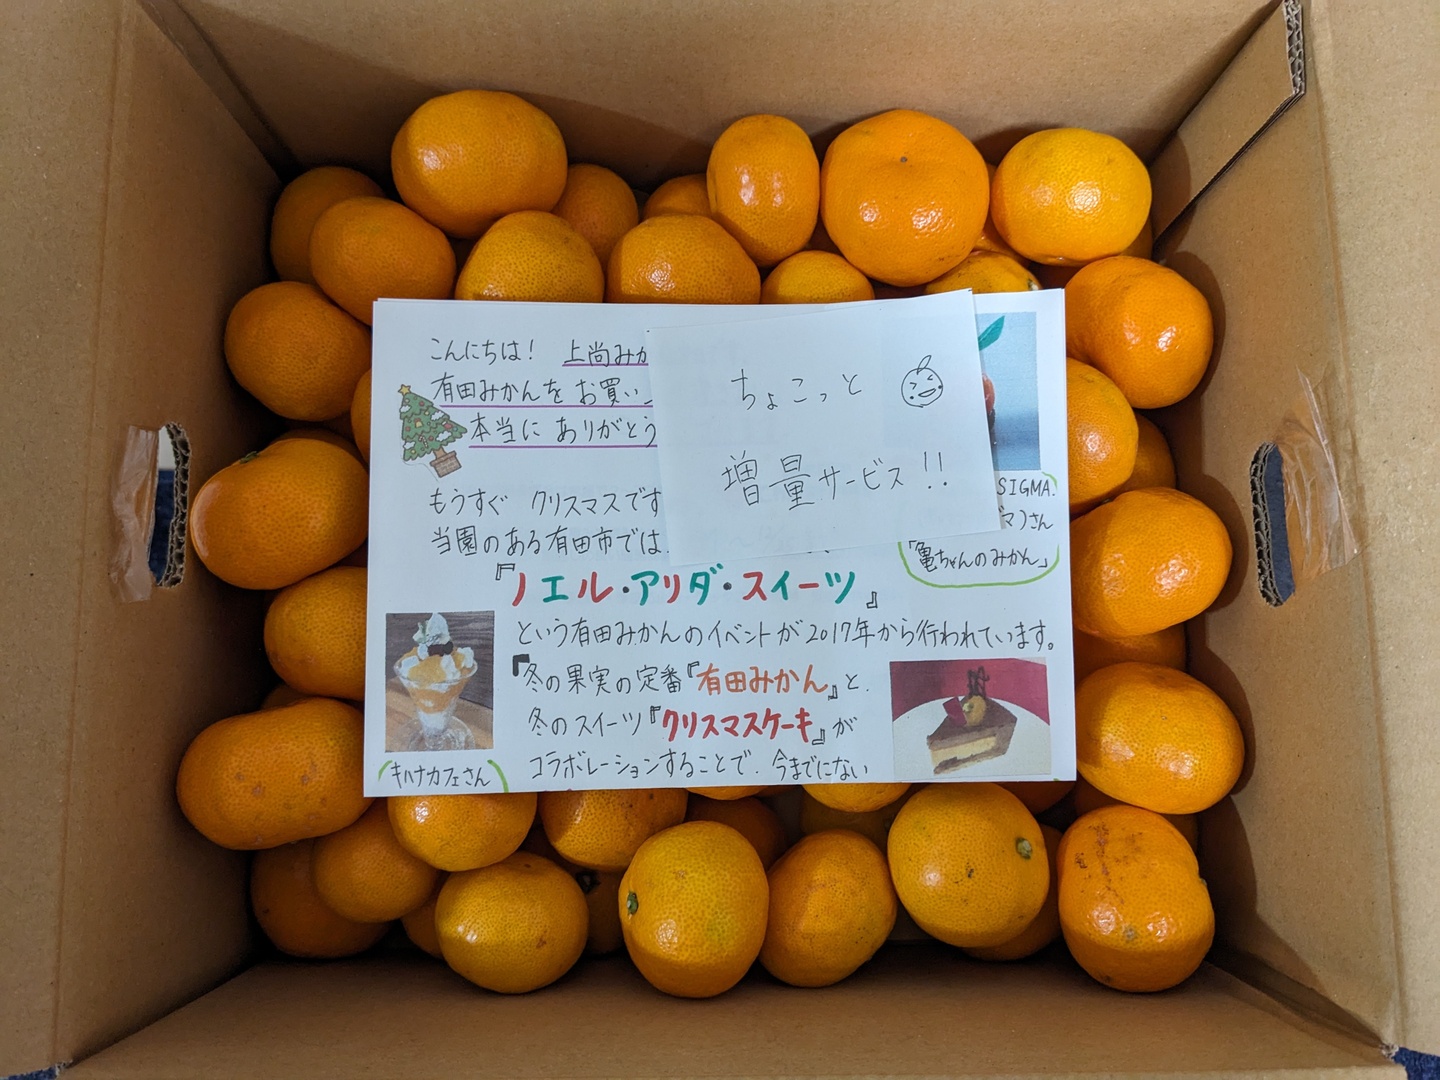 こんにちは! 上尚みか
有田みかんを お買い
本当に ありがとう
もうすぐ クリスマスです
当園のある有田市では
『ノエル・アリダ・スイーツ』
という有田みかんのイベントが2017年から行われています。
『冬の果実の定番『有田みかん』と、
冬のスイーツ『クリスマスケーキ』が
コラボレーションすることで、今までにない
キハナカフェさん
ちょこっと
増量サービス!!
SIGMA.
マ)さん
「亀ちゃんのみかん」